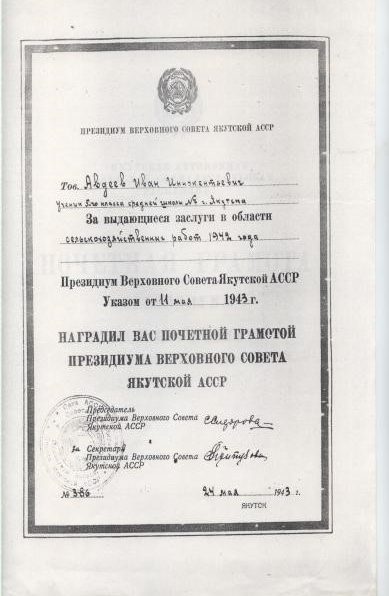 ПРЕЗИДИУМ ВЕРХОВНОГО СОВЕТА ЯКУТСКОЙ АССР
Тов. Авдеев Иван Иннокентьевич
ученик класса средней школы г. Якутска
За выдающиеся заслуги в области
сельскохозяйственных работ 1942 года
Президиум Верховного Совета Якутской АССР
Указом от 11 мая 1943 г.
НАГРАДИЛ ВАС ПОЧЕТНОЙ ГРАМОТОЙ
ПРЕЗИДИУМА ВЕРХОВНОГО СОВЕТА
ЯКУТСКОЙ АССР
Председатель
Президиума Верховного Совета Сидорова
Якутской АССР
За Секретарь
Президиума Верховного Совета
Якутской АССР
№ 386 24 мая 1943 г.
ЯКУТСК